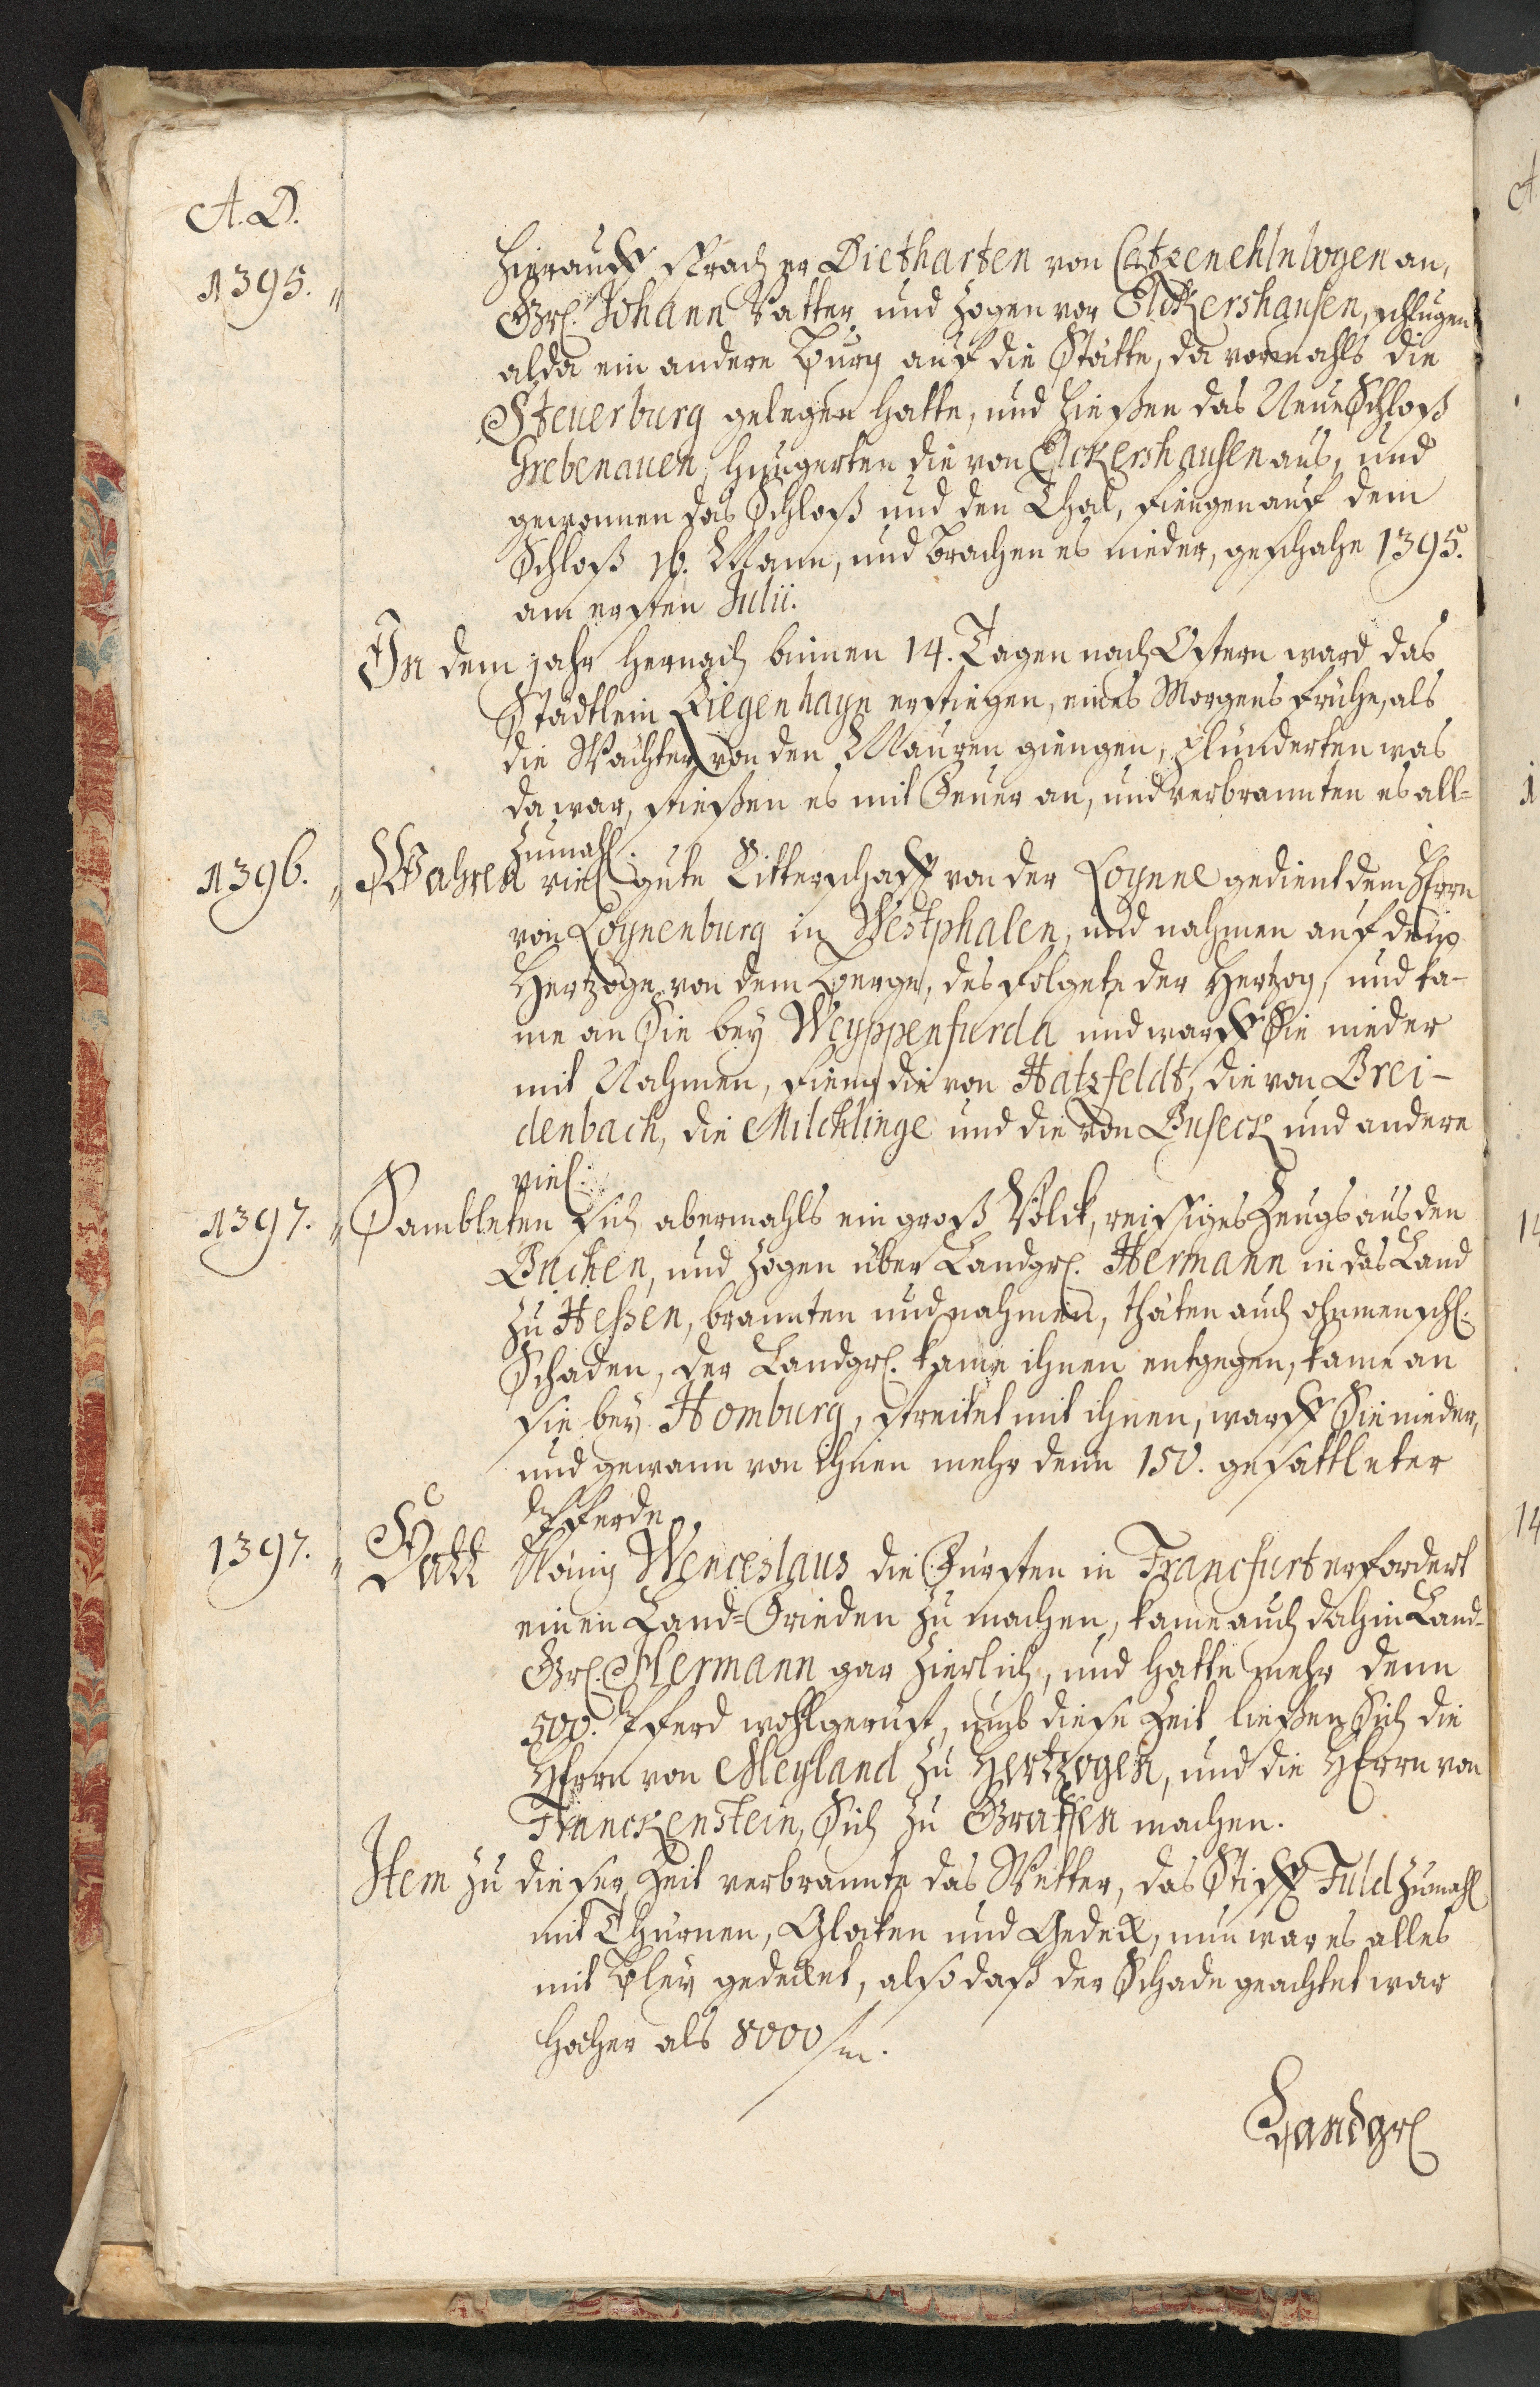 A. D.
1395. "
hierauff sprach er Dietharten von Catzenehlnbogen an,
Gr. Johann Vatter und zogen vor Elckershausen, schlugen
alda ein andere Burg auf die Stätte, da vormahls die
Steuerburg gelegen hatte, und hießen das Neue Schloß
Grebenauen, hungerten die von Elckershausen aus, und
gewonnen das Schloß und den Thal, fiengen auf dem
Schloß 16. Mann, und brachen es nieder, geschahe 1395.
am ersten Julii.
In dem jahr hernach binnen 14. Tagen nach Ostern ward das
Städtlein Ziegenhayn erstiegen, eines Morgens frühe, als
die Wächter von den Mauren giengen, plünderten was
da war, stießen es mit Feuer an, und verbrannten es all=
zumahl.
1396. " Wahren viel gute Ritterschafft von der Loynne gedient dem Herrn
von Loynenburg in Westphalen, und nahmen auf dem
Hertzoge von dem Berge, des folgete der Hertzog, und ka-
me an Sie bey Weyppenfurda und warff Sie nieder
mit Nahmen, fieng die von Hatzfeldt, die von Brei-
denbach, die Milchlinge und die von Buseck und andere
viel.
1397. " Sambleten sich abermahls ein groß Volck, reisiges Zeugs aus den
Buchen, und zogen über Landgr. Hermann in das Land
zu Hessen, brannten und nahmen, thäten auch ohnmenschl.
Schaden, der Landgr. kame ihnen entgegen, kame an
sie bey Homburg, streitet mit ihnen, warff Sie nieder,
und gewann von ihnen mehr denn 150. gesattleter
Pferde.
1397. " Hatt König Wenceslaus die Fürsten in Francfurt erfordert
einen Land=Frieden zu machen, kame auch dahin Land-
Gr. Hermann gar zierlich, und hatte mehr denn
500. Pferd wohlgerüst, umb diese Zeit ließen Sich die
Herrn von Meyland zu Hertzogen, und die Herrn von
Franckenstein, Sich zu Graffen machen.
Item zu dieser Zeit verbrannte das Wetter, das Stifft Fuld zumahl
mit Thurnen, Glocken und Gedeck, nun war es alles
mit Bley gedecket, also daß der Schade geachtet war
höher als 8000/m.
Landgr